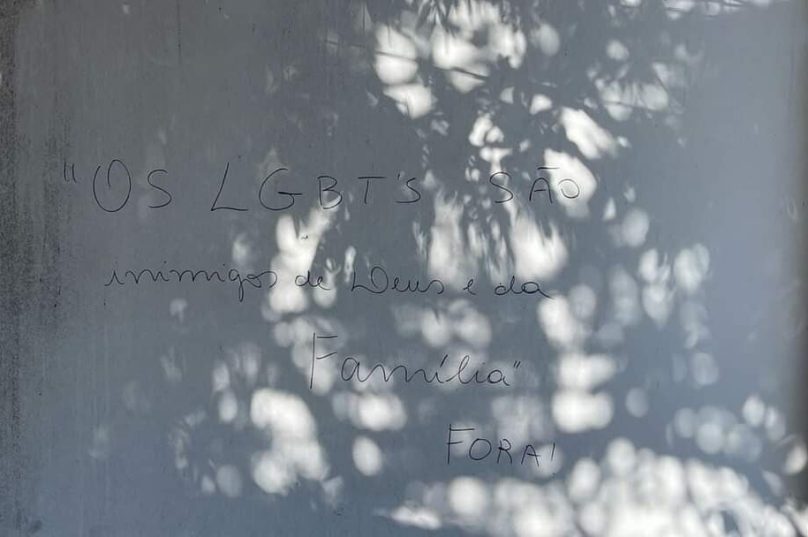 "OS LGBT'S SÃO
inimigos de Deus e da
Família"
FORA!